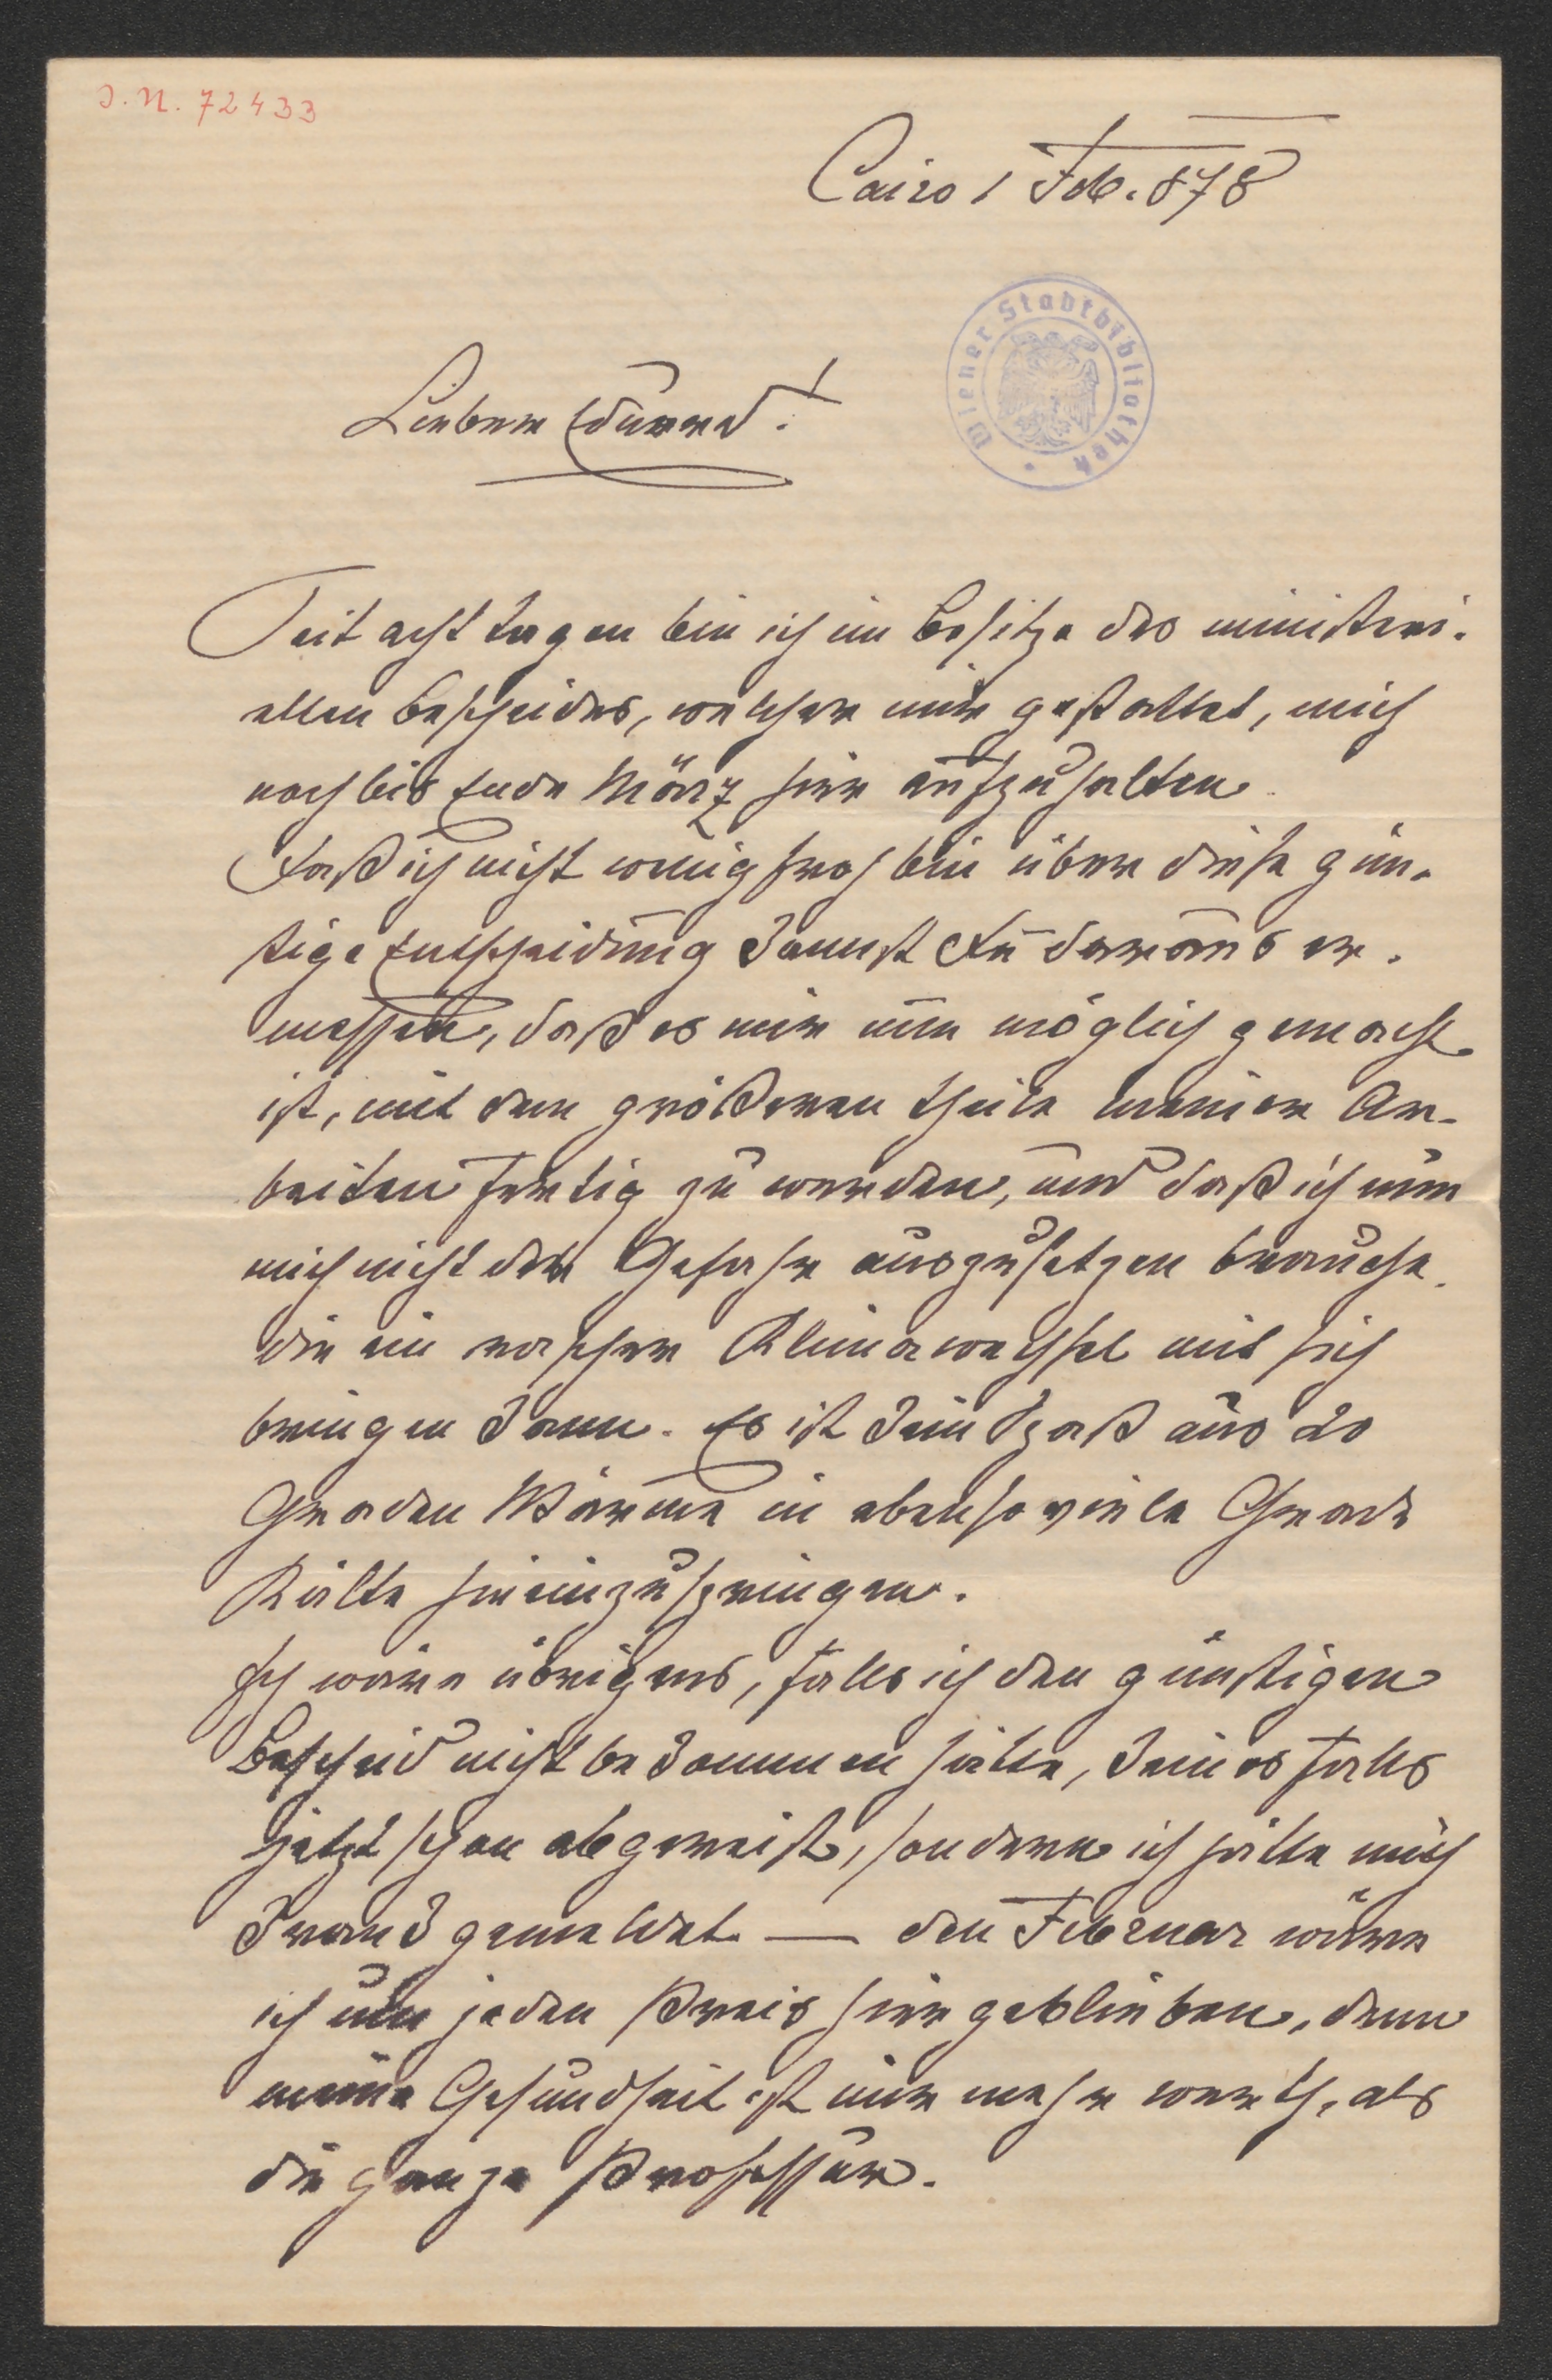 J. N. 72433
Cairo 1 Feb. 878
Wiener Stadtbibliothek
Lieber Eduard!
Seit acht Tagen bin ich im Besitze des ministeri-
ellen Bescheides, welcher mir gestattet, mich
noch bis Ende März hier aufzuhalten.
Daß ich nicht wenig froh bin über diese gün-
stige Entscheidung kannst Du daraus er-
messen, daß es mir nun möglich gemacht
ist, mit dem größeren Theile meiner Ar-
beiten fertig zu werden, und daß ich nun
mich nicht der Gefahr auszusetzen brauche,
die ein rascher Klimawechsel mit sich
bringen kann. Es ist kein Spaß aus 20
Graden Wärme in ebensoviele Grade
Kälte hineinzuspringen.
Ich wäre übrigens, falls ich den günstigen
Bescheid nicht bekommen hätte, keinesfalls
jetzt schon abgereist, sondern ich hätte mich
krank gemeldet — den Februar wäre
ich um jeden Preis hier geblieben, denn
meine Gesundheit ist mir mehr werth, als
die ganze Professur.